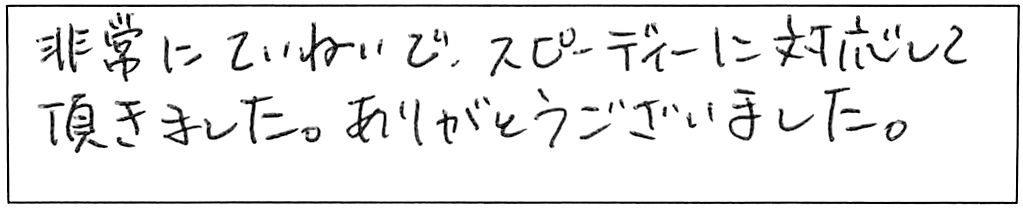 非常にていねいで、スピーディーに対応して
頂きました。ありがとうございました。